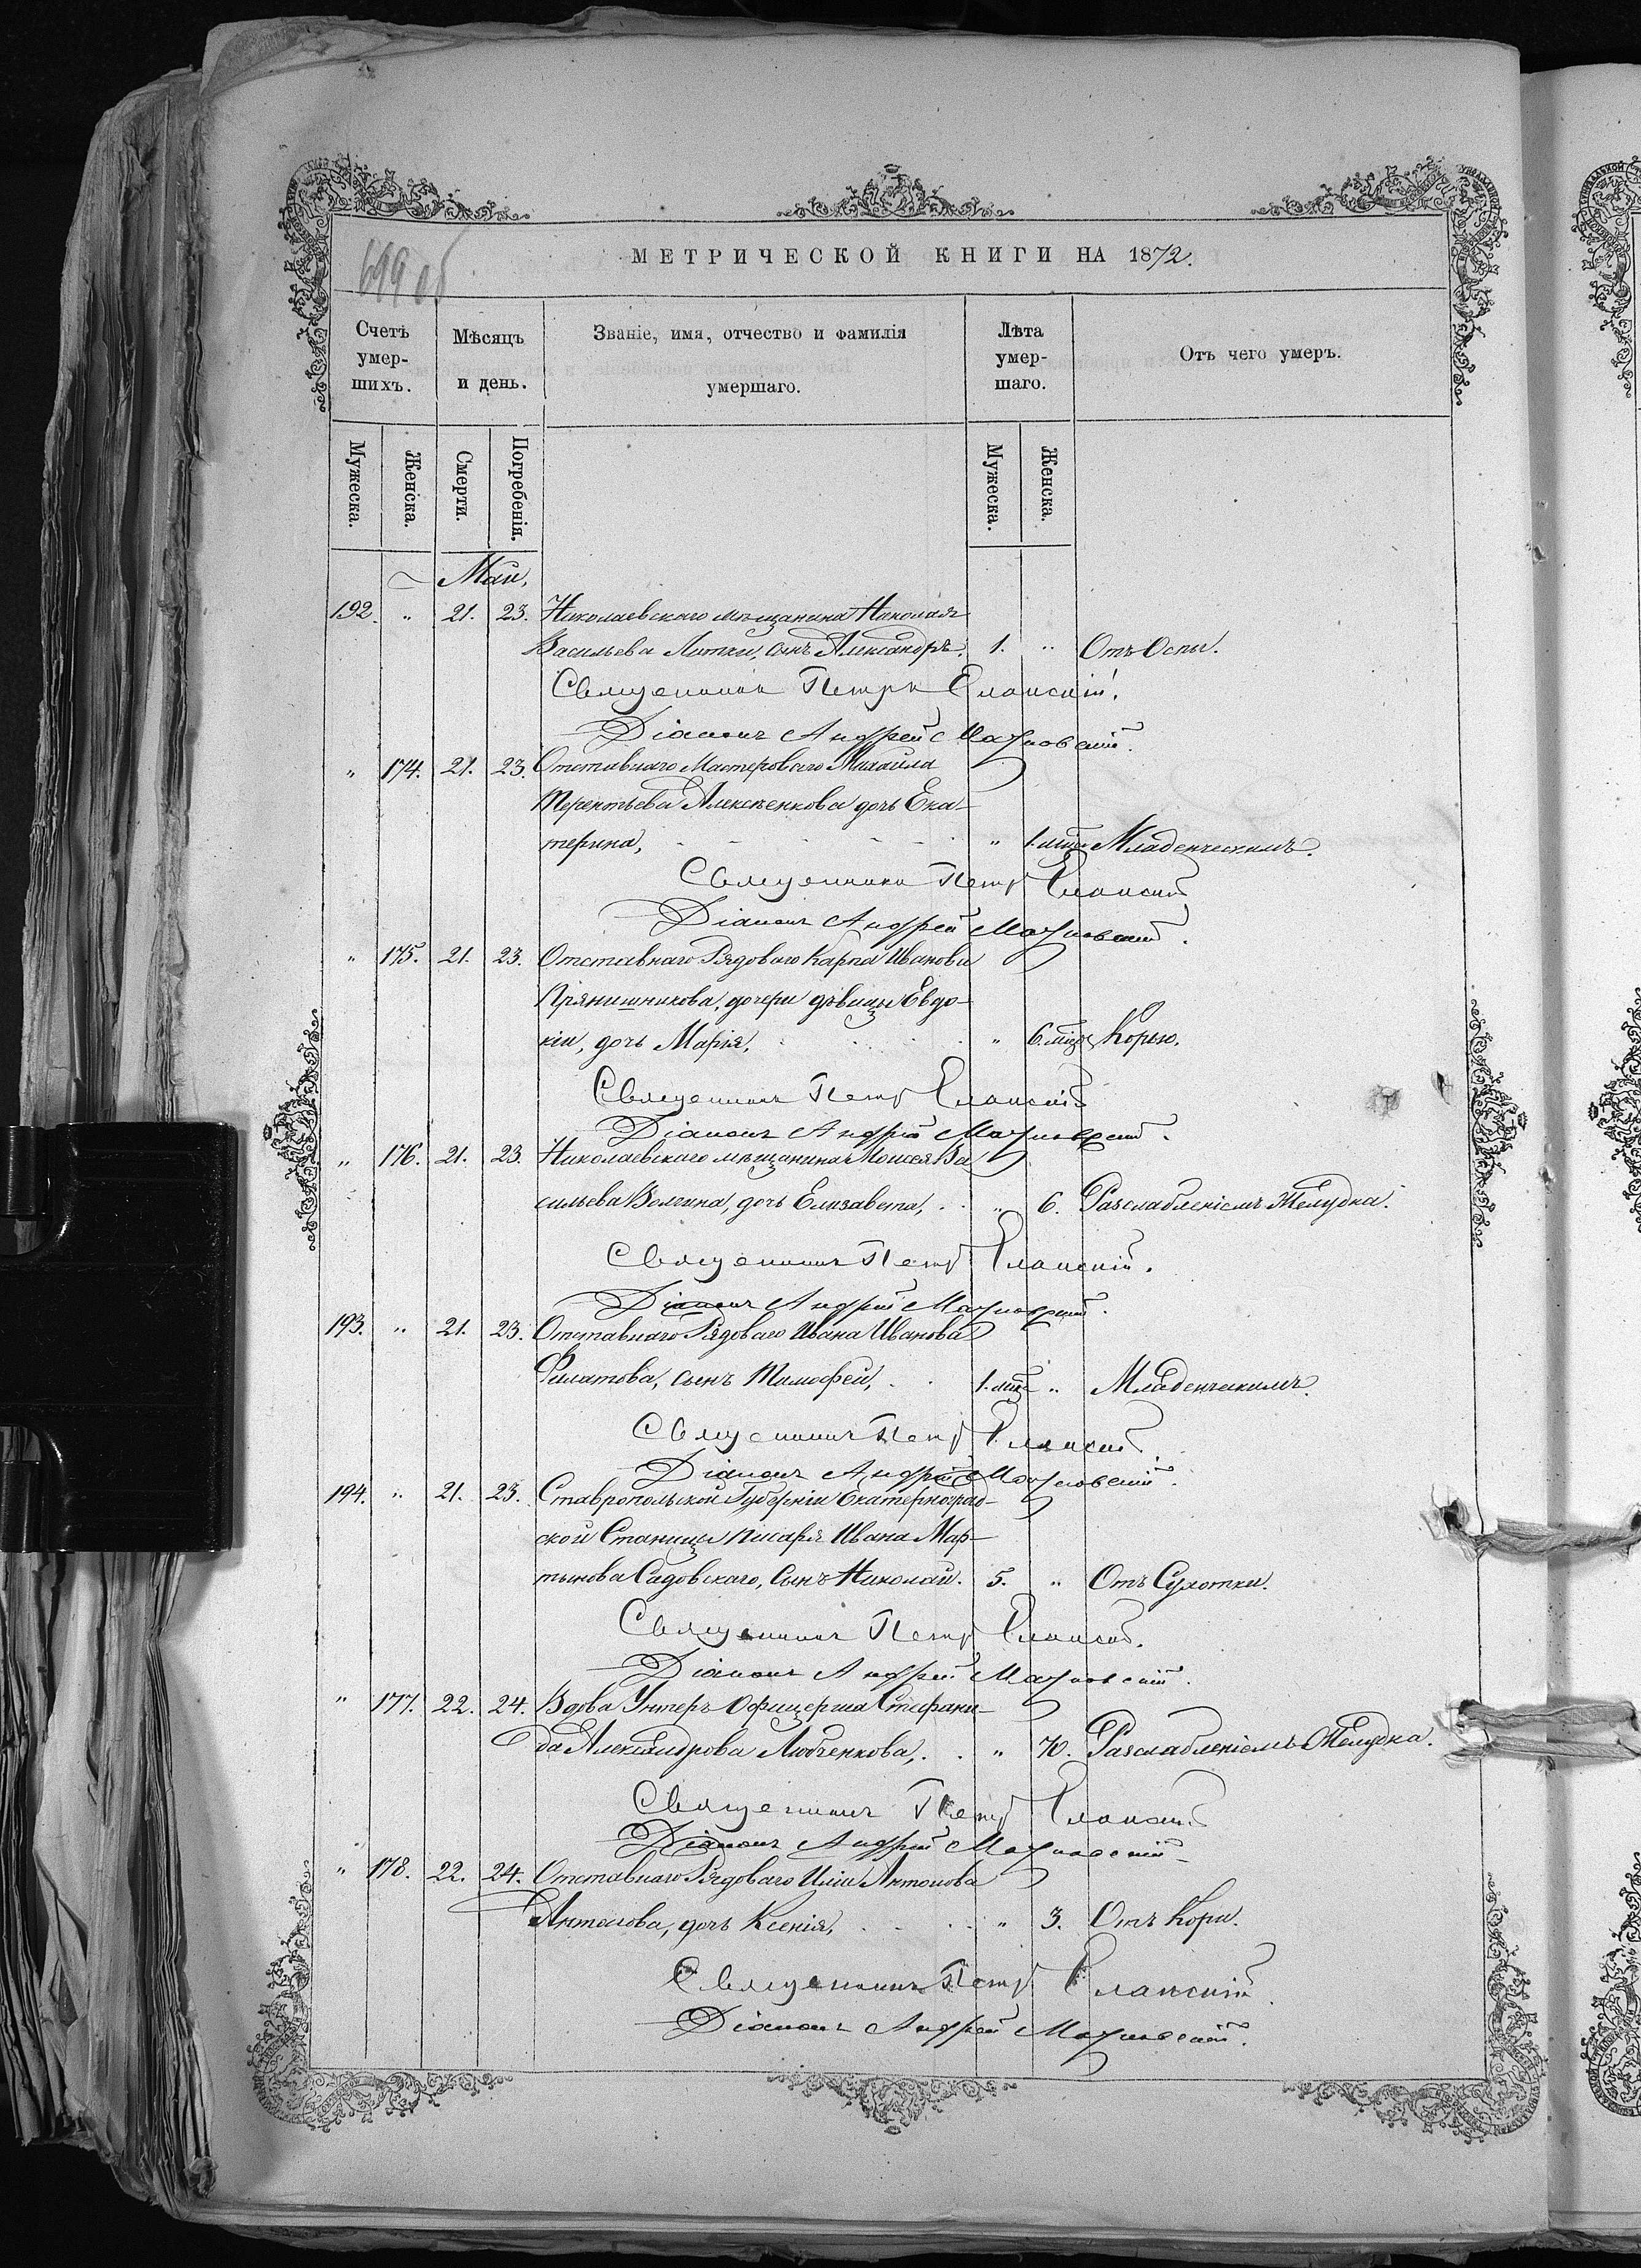 699 об
МЕТРИЧЕСКОЙ КНИГИ НА 1872.
Счетъ умер-шихъ.
Мѣсяцъ и день.
Званіе, имя, отчество и фамилія умершаго.
Лѣта умер-шаго.
Отъ чего умеръ.
Мужеска. Женска. Смерти. Погребенія. Мужеска. Женска.
Май,
192. " 21. 23. Николаевскаго мѣщанина Николая
Васильева сынъ Александръ. 1. " Отъ Оспы.
Священникъ Петръ Еланскій.
Діаконъ Андрей
" 174. 21. 23. Отставнаго Мастероваго Михаила
Терентьева Алексѣенкова дочь Ека-
терина, " 1. мѣс. Младенческимъ.
Священникъ Петръ Еланскій
Діаконъ Андрей
" 175. 21. 23. Отставнаго Рядоваго Карпа Иванова
Прянишникова, дочери дѣвицы Евдо-
кіи, дочь Марія, " 6. мѣс. Корью.
Священникъ Петръ Еланскій
Діаконъ Андрей
" 176. 21. 23. Николаевскаго мѣщанина Моисея Ва
сильева Волгина, дочь Елизавета, " 6. Разслабленіемъ Желудка.
Священникъ Петръ Еланскій.
Діаконъ Андрей
193. " 21. 23. Отставнаго Рядоваго Ивана Иванова
Филатова, сынъ Тимофей, 1. мѣс. " Младенческимъ.
Священникъ Петръ Еланскій
Діаконъ Андрей
194. " 21. 23. Ставропольской Губерніи Екатериноград-
ской Станицы писаря Ивана Мар-
тынова Садовскаго, сынъ Николай. 5. " Отъ Сухотки.
Священникъ Петръ Еланскій.
Діаконъ Андрей
" 177. 22. 24. Вдова Унтеръ Офицерша Стефани-
да Александрова Любченкова, " 70. Разслабленіемъ Желудка.
Священникъ Петръ Еланскій
Діаконъ Андрей
" 178. 22. 24. Отставнаго Рядоваго Иліи Антонова
Антонова, дочь Ксенія, " 3. Отъ Кори.
Священникъ Петръ Еланскій
Діаконъ Андрей